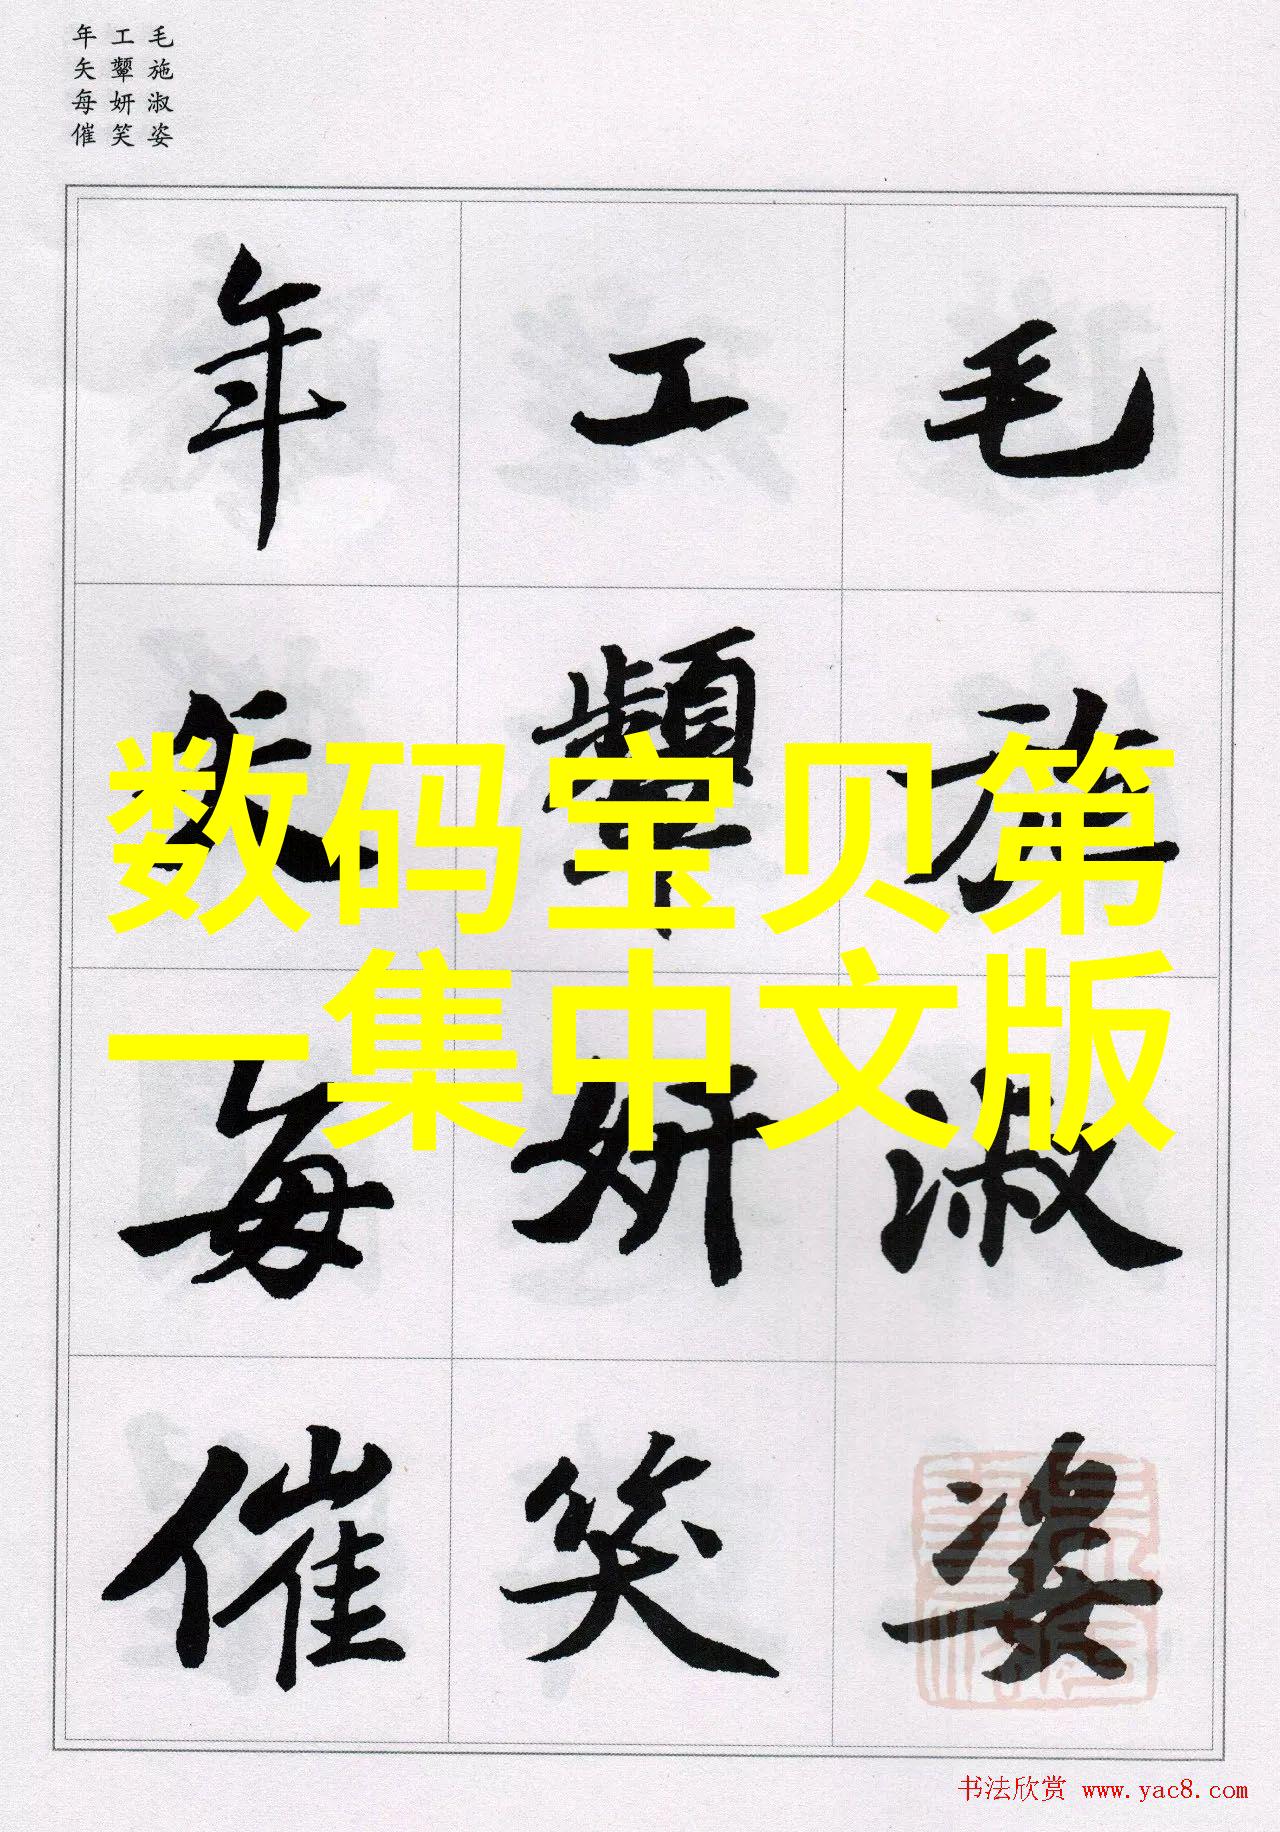 毛施淑姿
工顰妍笑
年矢每催
毛施淑姿
工顰妍笑
年矢每催
数码宝贝第
一集中文版
书法欣赏 www.yac8.com